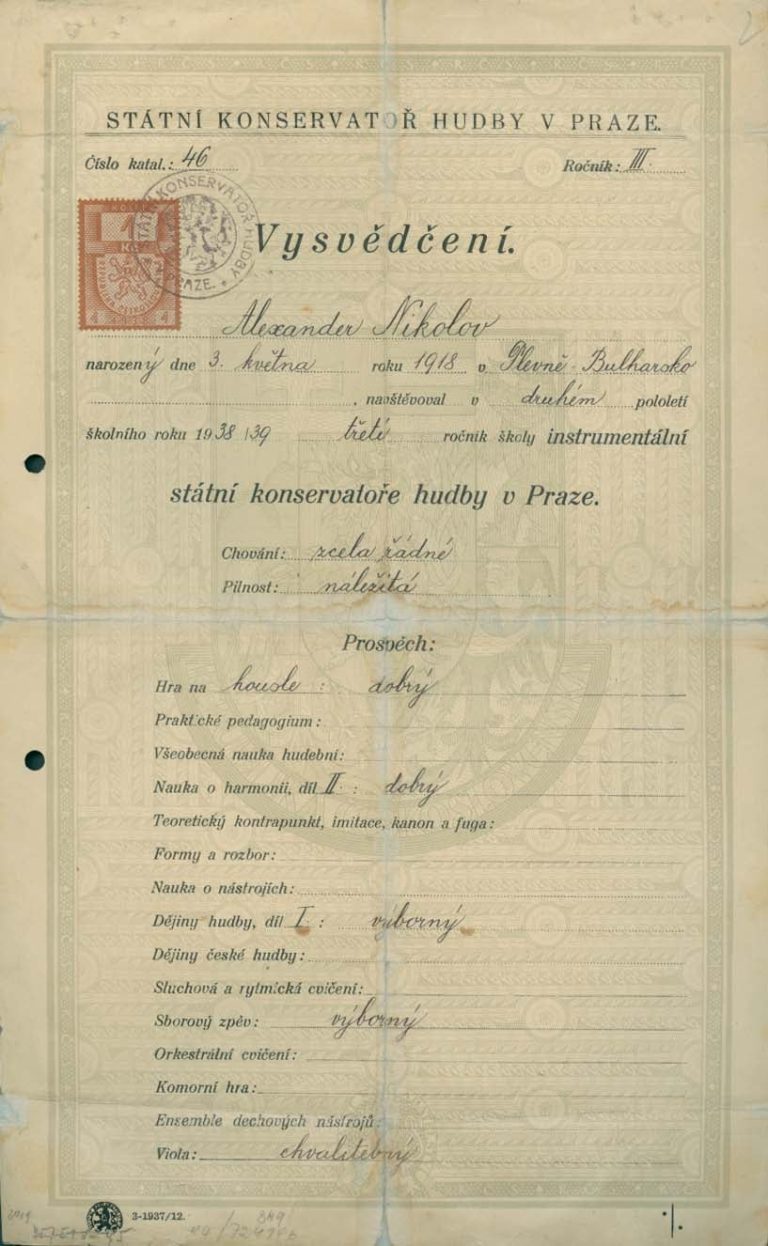 STÁTNÍ KONSERVATOŘ HUDBY V PRAZE.
Číslo katal.: 46 Ročník: III.
STÁTNÍ KONSERVATOŘ HUDBY V PRAZE.
1 Kč
4 4
Vysvědčení.
Alexander Nikolov
narozený dne 3. května roku 1918 v Plevně - Bulharsko
, navštěvoval v druhém pololetí
školního roku 1938/39 třetí ročník školy instrumentální
státní konservatoře hudby v Praze.
Chování: zcela řádné
Pilnost: náležitá
Prospěch:
Hra na housle: dobrý
Praktické pedagogium:
Všeobecná nauka hudební:
Nauka o harmonii, díl II.: dobrý
Teoretický kontrapunkt, imitace, kanon a fuga:
Formy a rozbor:
Nauka o nástrojích:
Dějiny hudby, díl I.: výborný
Dějiny české hudby:
Sluchová a rytmická cvičení:
Sborový zpěv: výborný
Orkestrální cvičení:
Komorní hra:
Ensemble dechových nástrojů:
Viola: chvalitebný
3-1937/12.
·/.